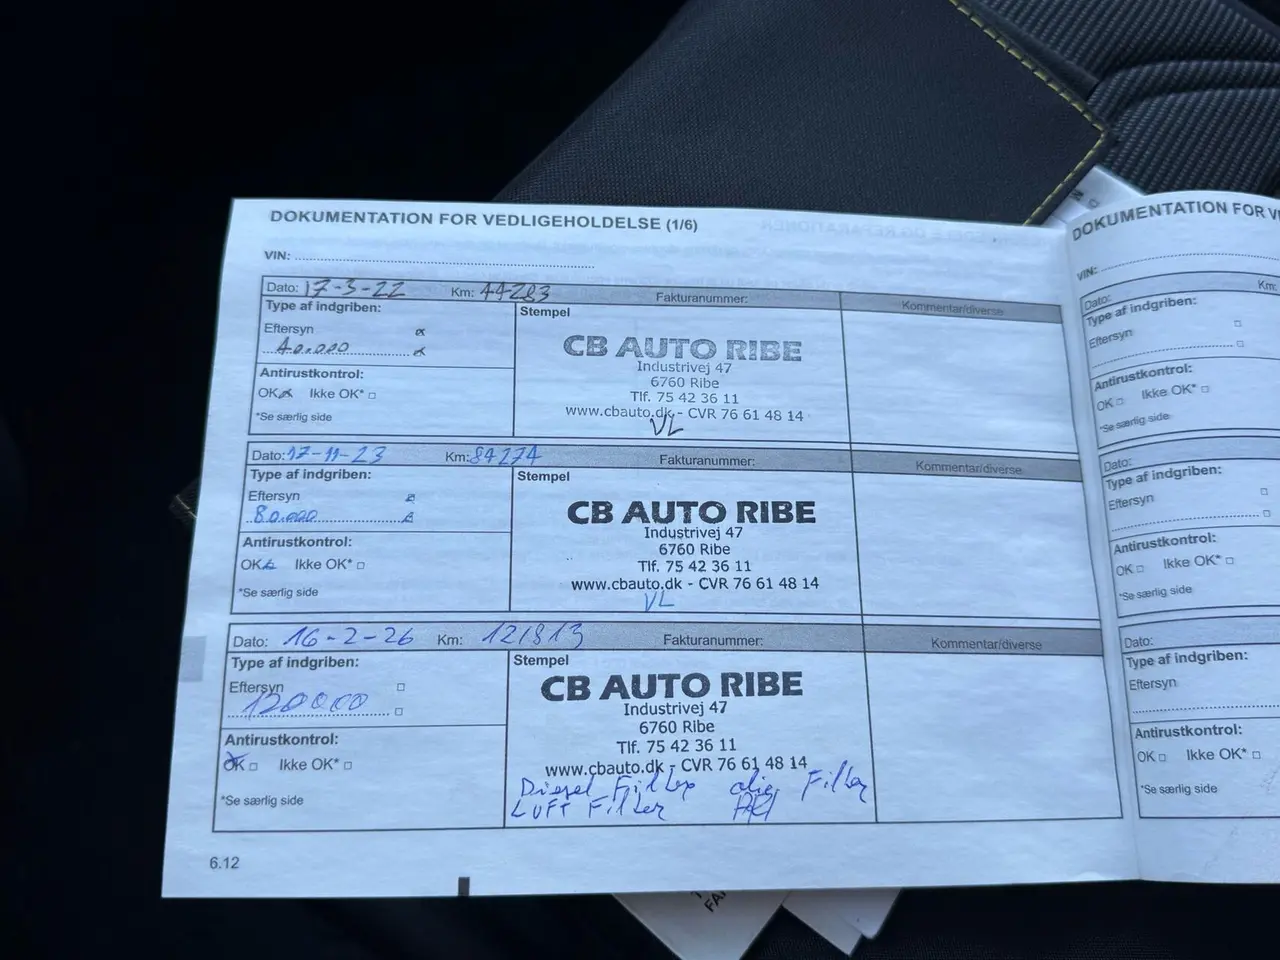 DOKUMENTATION FOR VEDLIGEHOLDELSE (1/6)
VIN:
Dato: 17-3-22 Km: 44283 Fakturanummer: Kommentar/diverse
Type af indgriben:
Eftersyn
40.000
Antirustkontrol:
OK Ikke OK*
*Se særlig side
Stempel
CB AUTO RIBE
Industrivej 47
6760 Ribe
Tlf. 75 42 36 11
www.cbauto.dk - CVR 76 61 48 14
VL
Dato: 17-11-23 Km: 84274 Fakturanummer: Kommentar/diverse
Type af indgriben:
Eftersyn
80.000
Antirustkontrol:
OK Ikke OK*
*Se særlig side
Stempel
CB AUTO RIBE
Industrivej 47
6760 Ribe
Tlf. 75 42 36 11
www.cbauto.dk - CVR 76 61 48 14
VL
Dato: 16-2-26 Km: 121813 Fakturanummer: Kommentar/diverse
Type af indgriben:
Eftersyn
120000
Antirustkontrol:
OK Ikke OK*
*Se særlig side
Stempel
CB AUTO RIBE
Industrivej 47
6760 Ribe
Tlf. 75 42 36 11
www.cbauto.dk - CVR 76 61 48 14
Diesel Filter olie Filter
LUFT Filter
6.12
DOKUMENTATION FOR
VIN:
Dato: Km:
Type af indgriben:
Eftersyn
Antirustkontrol:
OK Ikke OK*
*Se særlig side
Dato:
Type af indgriben:
Eftersyn
Antirustkontrol:
OK Ikke OK*
*Se særlig side
Dato:
Type af indgriben:
Eftersyn
Antirustkontrol:
OK Ikke OK*
*Se særlig side